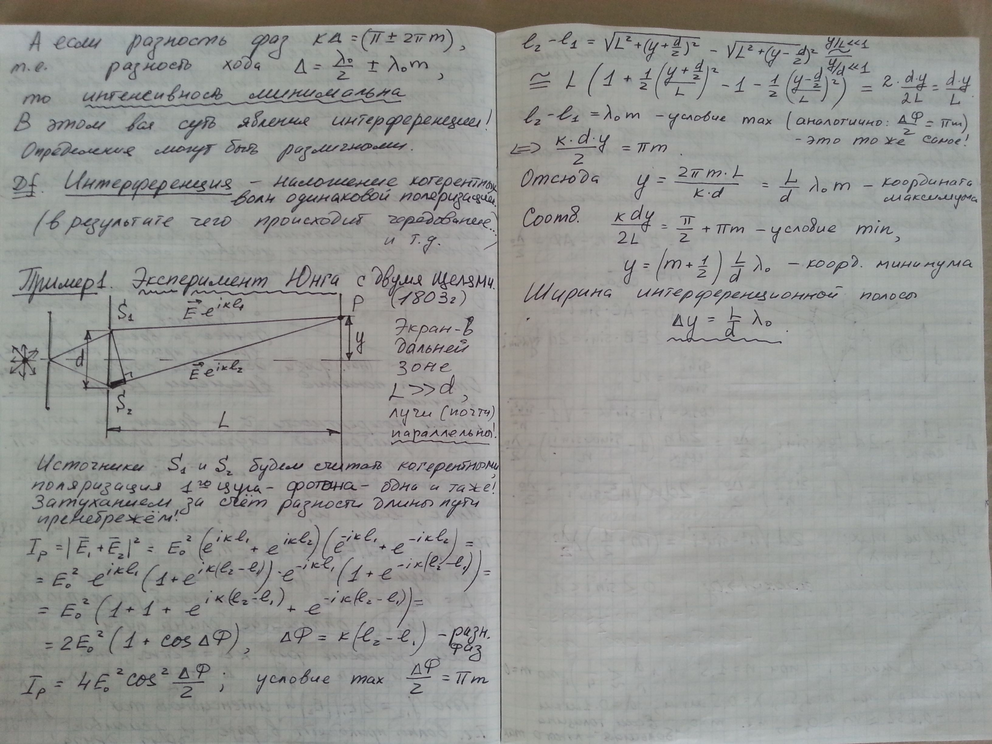 А если разность фаз кΔ = (π ± 2πm),
т.е. разность хода Δ = λ₀/2 ± λ₀m,
то интенсивность минимальна
В этом вся суть явления интерференции!
Определения могут быть различными.
Df. Интерференция – наложение когерентных
волн одинаковой поляризации
(в результате чего происходит чередование...
и т.д.)
Пример 1. Эксперимент Юнга с двумя щелями.
(1803г)
S₁
E⃗·e^{ikl₁}
P
y
d
E⃗·e^{ikl₂}
S₂
L
Экран - в
дальней
зоне
L >> d,
лучи (почти)
параллельны!
Источники S₁ и S₂ будем считать когерентными,
поляризация 1го цуга - фотона - одна и таже!
Затуханием за счёт разности длины пути
пренебрежём!
I_P = |E⃗₁ + E⃗₂|² = E₀² (e^{ikl₁} + e^{ikl₂})(e^{-ikl₁} + e^{-ikl₂}) =
= E₀² · e^{ikl₁} (1 + e^{ik(l₂-l₁)}) · e^{-ikl₁} (1 + e^{-ik(l₂-l₁)}) =
= E₀² (1 + 1 + e^{ik(l₂-l₁)} + e^{-ik(l₂-l₁)}) =
= 2E₀² (1 + cos ΔΦ), ΔΦ = k(l₂-l₁) - разн.
фаз
I_P = 4E₀² cos² ΔΦ/2 ; условие max ΔΦ/2 = πm
l₂-l₁ = √(L² + (y + d/2)²) - √(L² + (y - d/2)²) y/L<<1
≅ L (1 + 1/2 ((y + d/2)/L)² - 1 - 1/2 ((y - d/2)/L)²) = 2 · d·y/2L = d·y/L
l₂-l₁ = λ₀m - условие max (аналогично: ΔΦ/2 = πm)
- это то же самое!
⇔ k·d·y/2 = πm.
Отсюда y = 2πm·L/k·d = L/d λ₀m - координата
максимума
Соотв. kdy/2L = π/2 + πm - условие min,
y = (m + 1/2) L/d λ₀ - коорд. минимума
Ширина интерференционной полосы
Δy = L/d λ₀.